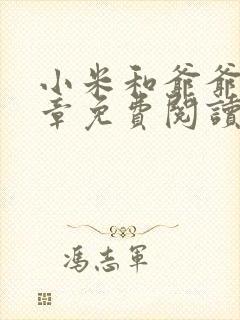 小米和爺爺
章免費閱讀
馮志軍